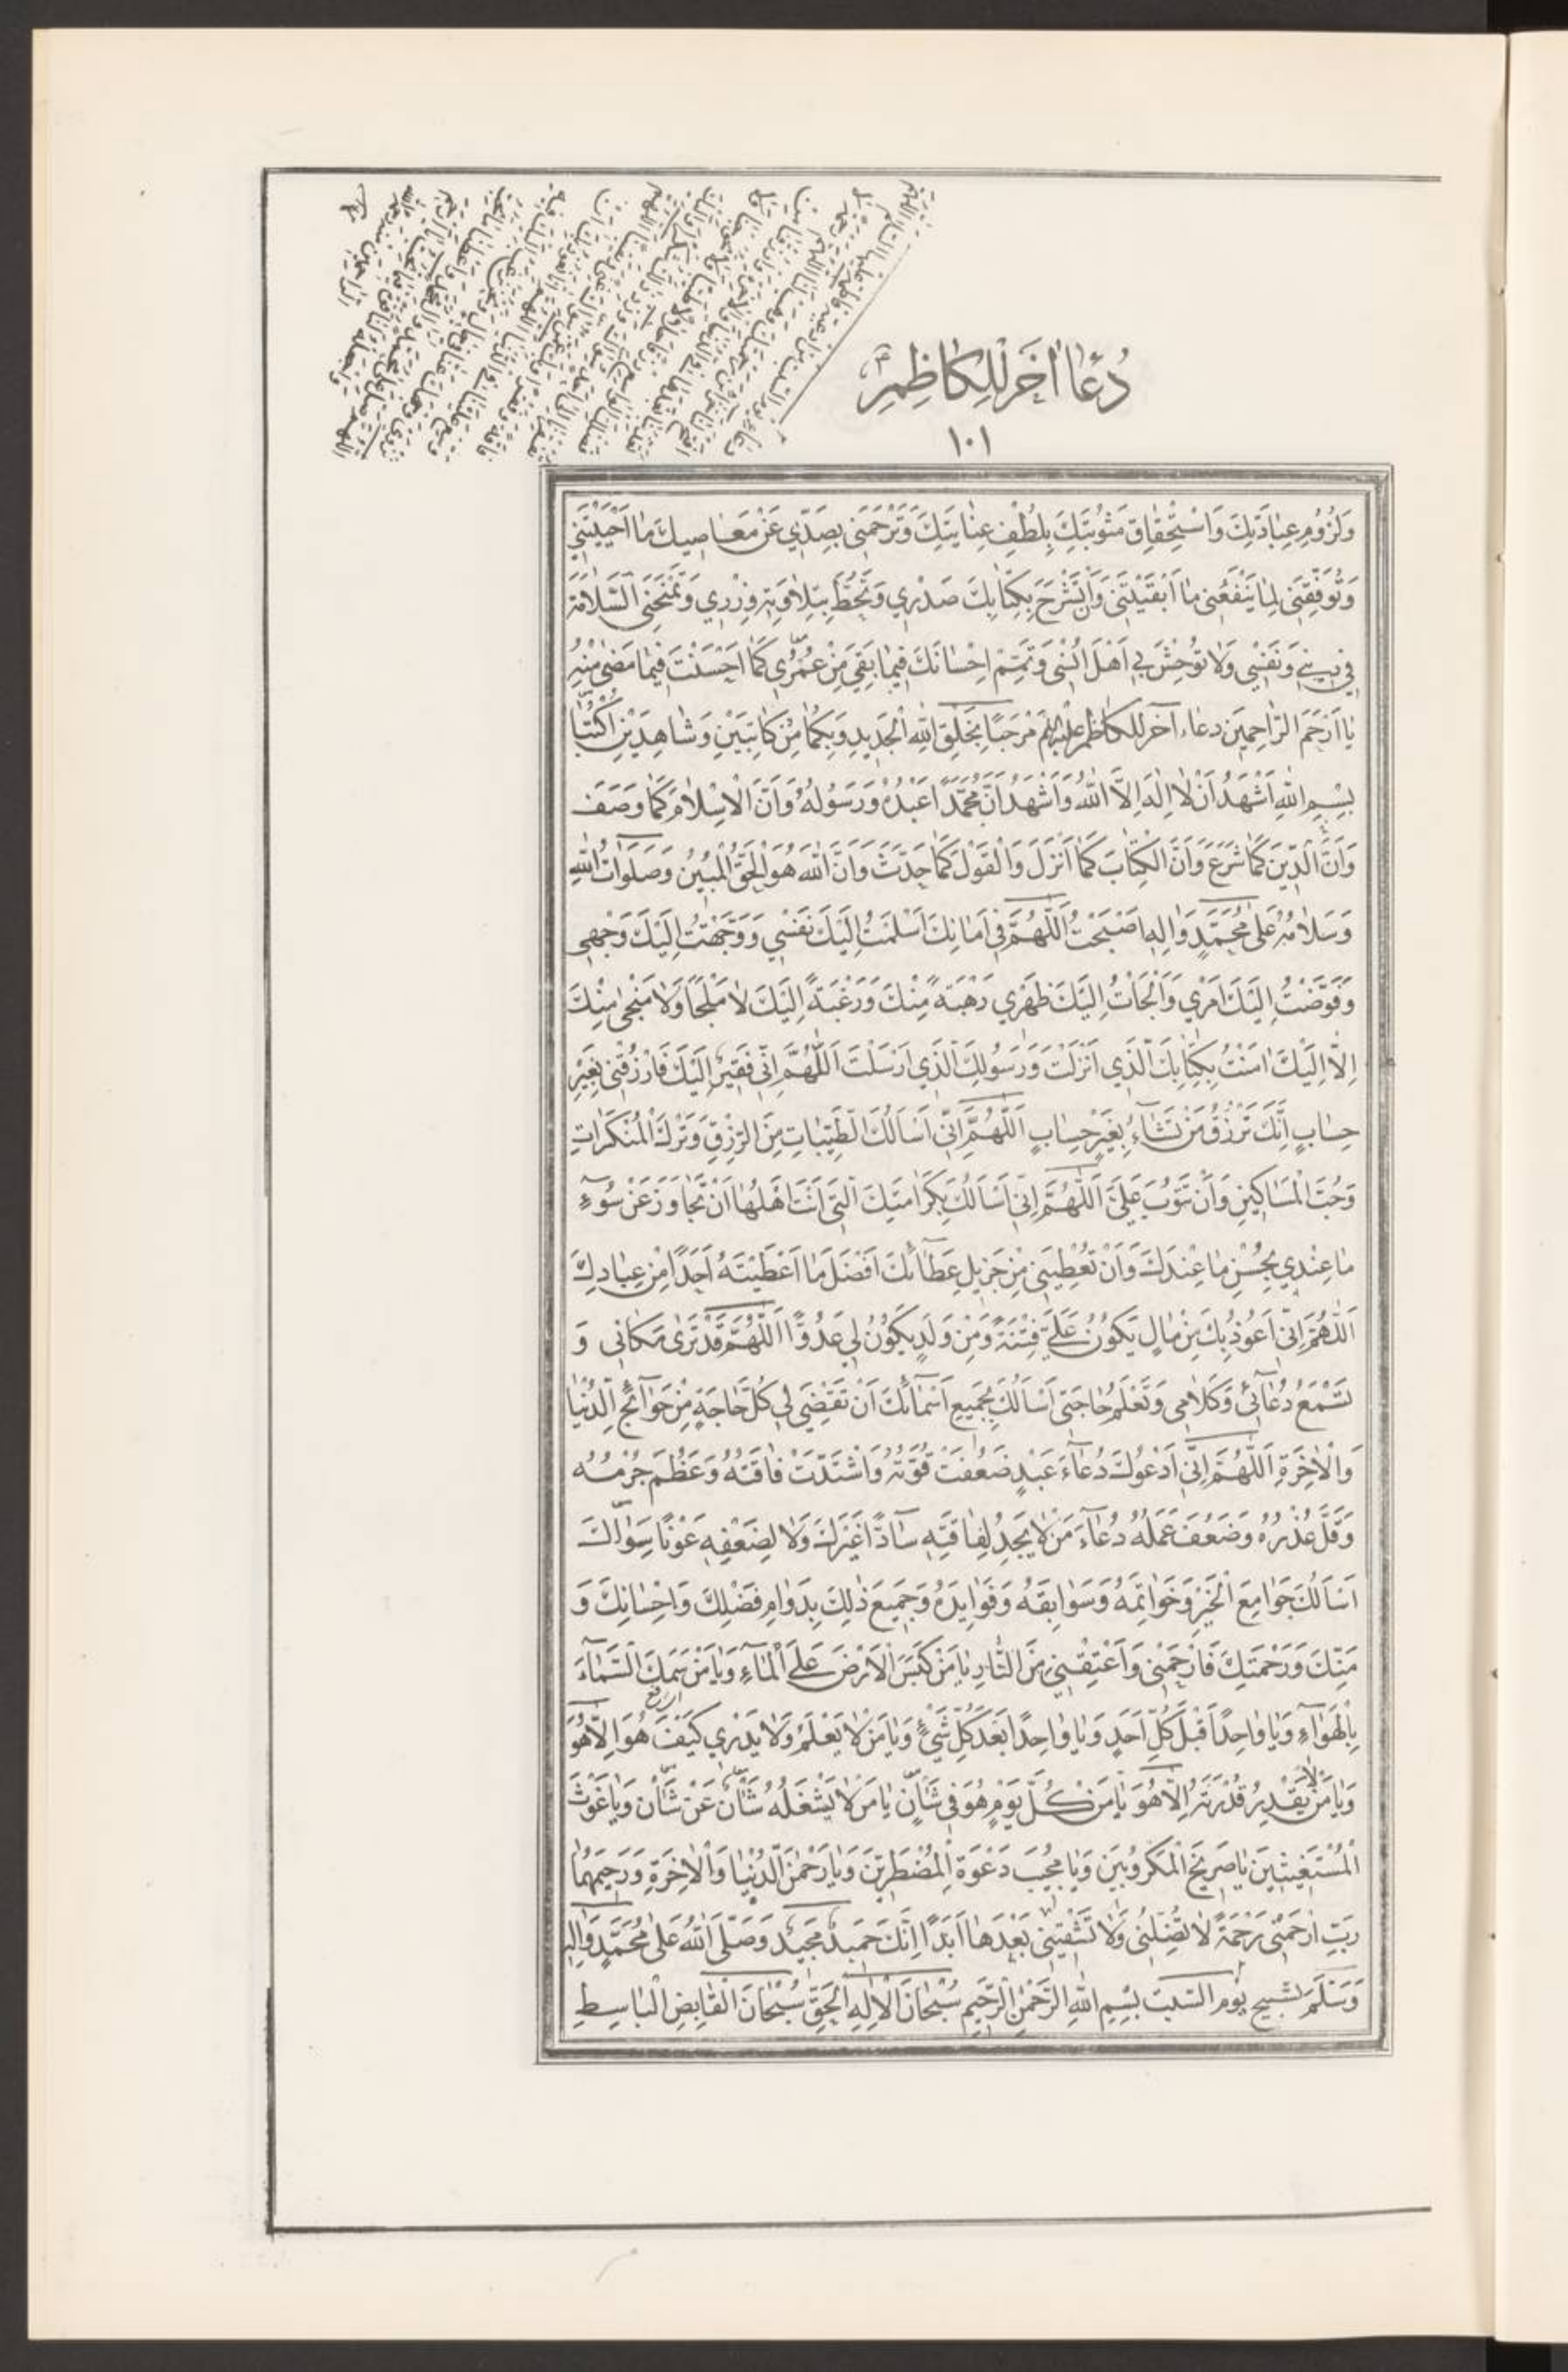 دُعَاءُ اٰخَرُ لِلْكَاظِمِ
١٠١
وَلُزُومِ عِبَادَتِكَ وَاسْتِحْقَاقِ مَثُوبَتِكَ بِلُطْفِ عِنَايَتِكَ وَتَرْحَمَنِي بِصَدِّي عَنْ مَعَاصِيكَ مَا اَحْيَيْتَنِي
وَتُوَفِّقَنِي لِمَا يَنْفَعُنِي مَا اَبْقَيْتَنِي وَاَنْ تَشْرَحَ بِكِتَابِكَ صَدْرِي وَتَحُطَّ بِتِلَاوَتِهِ وِزْرِي وَتَمْنَحَنِي السَّلَامَةَ
فِي دِينِي وَنَفْسِي وَلَا تُوحِشَ بِي اَهْلَ اُنْسِي وَتُتِمَّ اِحْسَانَكَ فِيمَا بَقِيَ مِنْ عُمُرِي كَمَا اَحْسَنْتَ فِيمَا مَضَى مِنْهُ
يَا اَرْحَمَ الرَّاحِمِينَ دعاء آخر للكاظم عليه السلام مَرْحَبًا بِخَلْقِ اللهِ الْجَدِيدِ وَبِكُمَا مِنْ كَاتِبَيْنِ وَشَاهِدَيْنِ اُكْتُبَا
بِسْمِ اللهِ اَشْهَدُ اَنْ لَا اِلٰهَ اِلَّا اللهُ وَاَشْهَدُ اَنَّ مُحَمَّدًا عَبْدُهُ وَرَسُولُهُ وَاَنَّ الْاِسْلَامَ كَمَا وَصَفَ
وَاَنَّ الدِّينَ كَمَا شَرَعَ وَاَنَّ الْكِتَابَ كَمَا اَنْزَلَ وَالْقَوْلَ كَمَا حَدَّثَ وَاَنَّ اللهَ هُوَ الْحَقُّ الْمُبِينُ وَصَلَوَاتُ اللهِ
وَسَلَامُهُ عَلَى مُحَمَّدٍ وَاٰلِهِ اَصْبَحْتُ اَللّٰهُمَّ فِي اَمَانِكَ اَسْلَمْتُ اِلَيْكَ نَفْسِي وَوَجَّهْتُ اِلَيْكَ وَجْهِي
وَفَوَّضْتُ اِلَيْكَ اَمْرِي وَاَلْجَاْتُ اِلَيْكَ ظَهْرِي رَهْبَةً مِنْكَ وَرَغْبَةً اِلَيْكَ لَا مَلْجَاَ وَلَا مَنْجَى مِنْكَ
اِلَّا اِلَيْكَ اٰمَنْتُ بِكِتَابِكَ الَّذِي اَنْزَلْتَ وَرَسُولِكَ الَّذِي اَرْسَلْتَ اَللّٰهُمَّ اِنِّي فَقِيرٌ اِلَيْكَ فَارْزُقْنِي بِغَيْرِ
حِسَابٍ اِنَّكَ تَرْزُقُ مَنْ تَشَاءُ بِغَيْرِ حِسَابٍ اَللّٰهُمَّ اِنِّي اَسْاَلُكَ الطَّيِّبَاتِ مِنَ الرِّزْقِ وَتَرْكَ الْمُنْكَرَاتِ
وَحُبَّ الْمَسَاكِينِ وَاَنْ تَتُوبَ عَلَيَّ اَللّٰهُمَّ اِنِّي اَسْاَلُكَ بِكَرَامَتِكَ الَّتِي اَنْتَ اَهْلُهَا اَنْ تَجَاوَزَ عَنْ سُوءِ
مَا عِنْدِي بِحُسْنِ مَا عِنْدَكَ وَاَنْ تُعْطِيَنِي مِنْ جَزِيلِ عَطَائِكَ اَفْضَلَ مَا اَعْطَيْتَهُ اَحَدًا مِنْ عِبَادِكَ
اَللّٰهُمَّ اِنِّي اَعُوذُ بِكَ مِنْ مَالٍ يَكُونُ عَلَيَّ فِتْنَةً وَمِنْ وَلَدٍ يَكُونُ لِي عَدُوًّا اَللّٰهُمَّ قَدْ تَرَى مَكَانِي وَ
تَسْمَعُ دُعَائِي وَكَلَامِي وَتَعْلَمُ حَاجَتِي اَسْاَلُكَ بِجَمِيعِ اَسْمَائِكَ اَنْ تَقْضِيَ لِي كُلَّ حَاجَةٍ مِنْ حَوَائِجِ الدُّنْيَا
وَالْاٰخِرَةِ اَللّٰهُمَّ اِنِّي اَدْعُوكَ دُعَاءَ عَبْدٍ ضَعُفَتْ قُوَّتُهُ وَاشْتَدَّتْ فَاقَتُهُ وَعَظُمَ جُرْمُهُ
وَقَلَّ عُذْرُهُ وَضَعُفَ عَمَلُهُ دُعَاءَ مَنْ لَا يَجِدُ لِفَاقَتِهِ سَادًّا غَيْرَكَ وَلَا لِضَعْفِهِ عَوْنًا سِوَاكَ
اَسْاَلُكَ جَوَامِعَ الْخَيْرِ وَخَوَاتِمَهُ وَسَوَابِقَهُ وَفَوَايِدَهُ وَجَمِيعَ ذٰلِكَ بِدَوَامِ فَضْلِكَ وَاِحْسَانِكَ وَ
مَنِّكَ وَرَحْمَتِكَ فَارْحَمْنِي وَاَعْتِقْنِي مِنَ النَّارِ يَا مَنْ كَبَسَ الْاَرْضَ عَلَى الْمَاءِ وَيَا مَنْ سَمَكَ السَّمَاءَ
بِالْهَوَاءِ وَيَا وَاحِدًا قَبْلَ كُلِّ اَحَدٍ وَيَا وَاحِدًا بَعْدَ كُلِّ شَيْءٍ وَيَا مَنْ لَا يَعْلَمُ وَلَا يَدْرِي كَيْفَ هُوَ اِلَّا هُوَ
وَيَا مَنْ لَا يَقْدِرُ قُدْرَتَهُ اِلَّا هُوَ يَا مَنْ كُلَّ يَوْمٍ هُوَ فِي شَاْنٍ يَا مَنْ لَا يَشْغَلُهُ شَاْنٌ عَنْ شَاْنٍ وَيَا غَوْثَ
الْمُسْتَغِيثِينَ يَا صَرِيخَ الْمَكْرُوبِينَ وَيَا مُجِيبَ دَعْوَةِ الْمُضْطَرِّينَ وَيَا رَحْمٰنَ الدُّنْيَا وَالْاٰخِرَةِ وَرَحِيمَهُمَا
رَبِّ ارْحَمْنِي رَحْمَةً لَا تُضِلُّنِي وَلَا تُشْقِينِي بَعْدَهَا اَبَدًا اِنَّكَ حَمِيدٌ مَجِيدٌ وَصَلَّى اللهُ عَلَى مُحَمَّدٍ وَاٰلِهِ
وَسَلَّمَ تسبيح يوم السبت بِسْمِ اللهِ الرَّحْمٰنِ الرَّحِيمِ سُبْحَانَ الْاِلٰهِ الْحَقِّ سُبْحَانَ الْقَابِضِ الْبَاسِطِ